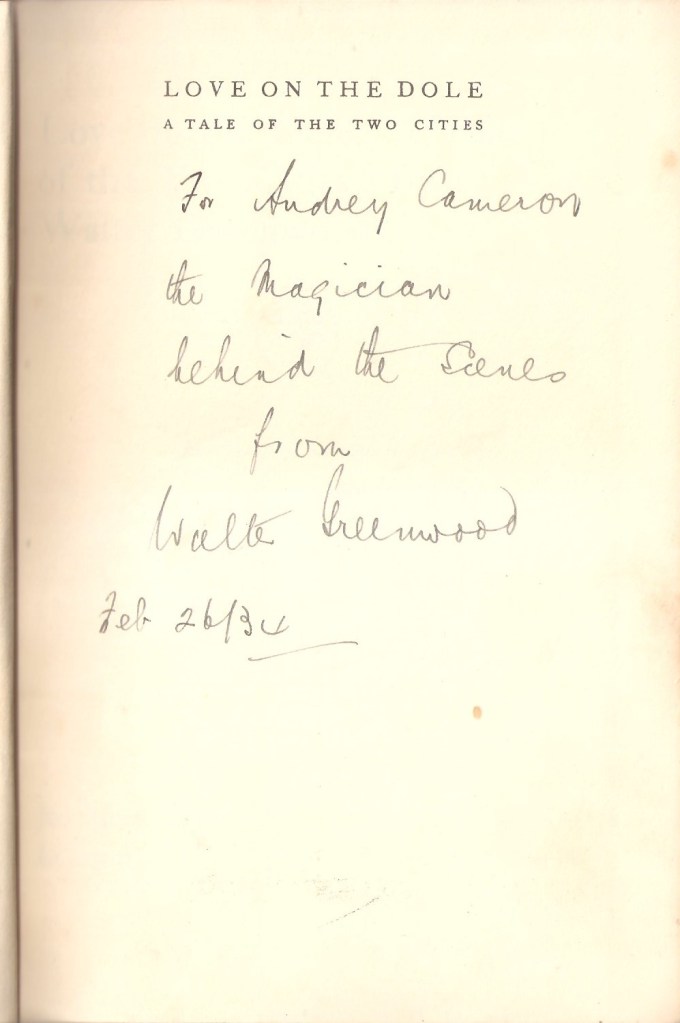 LOVE ON THE DOLE
A TALE OF THE TWO CITIES
For Audrey Cameron
the Magician
behind the Scenes
from
Walter Greenwood
Feb 26/34